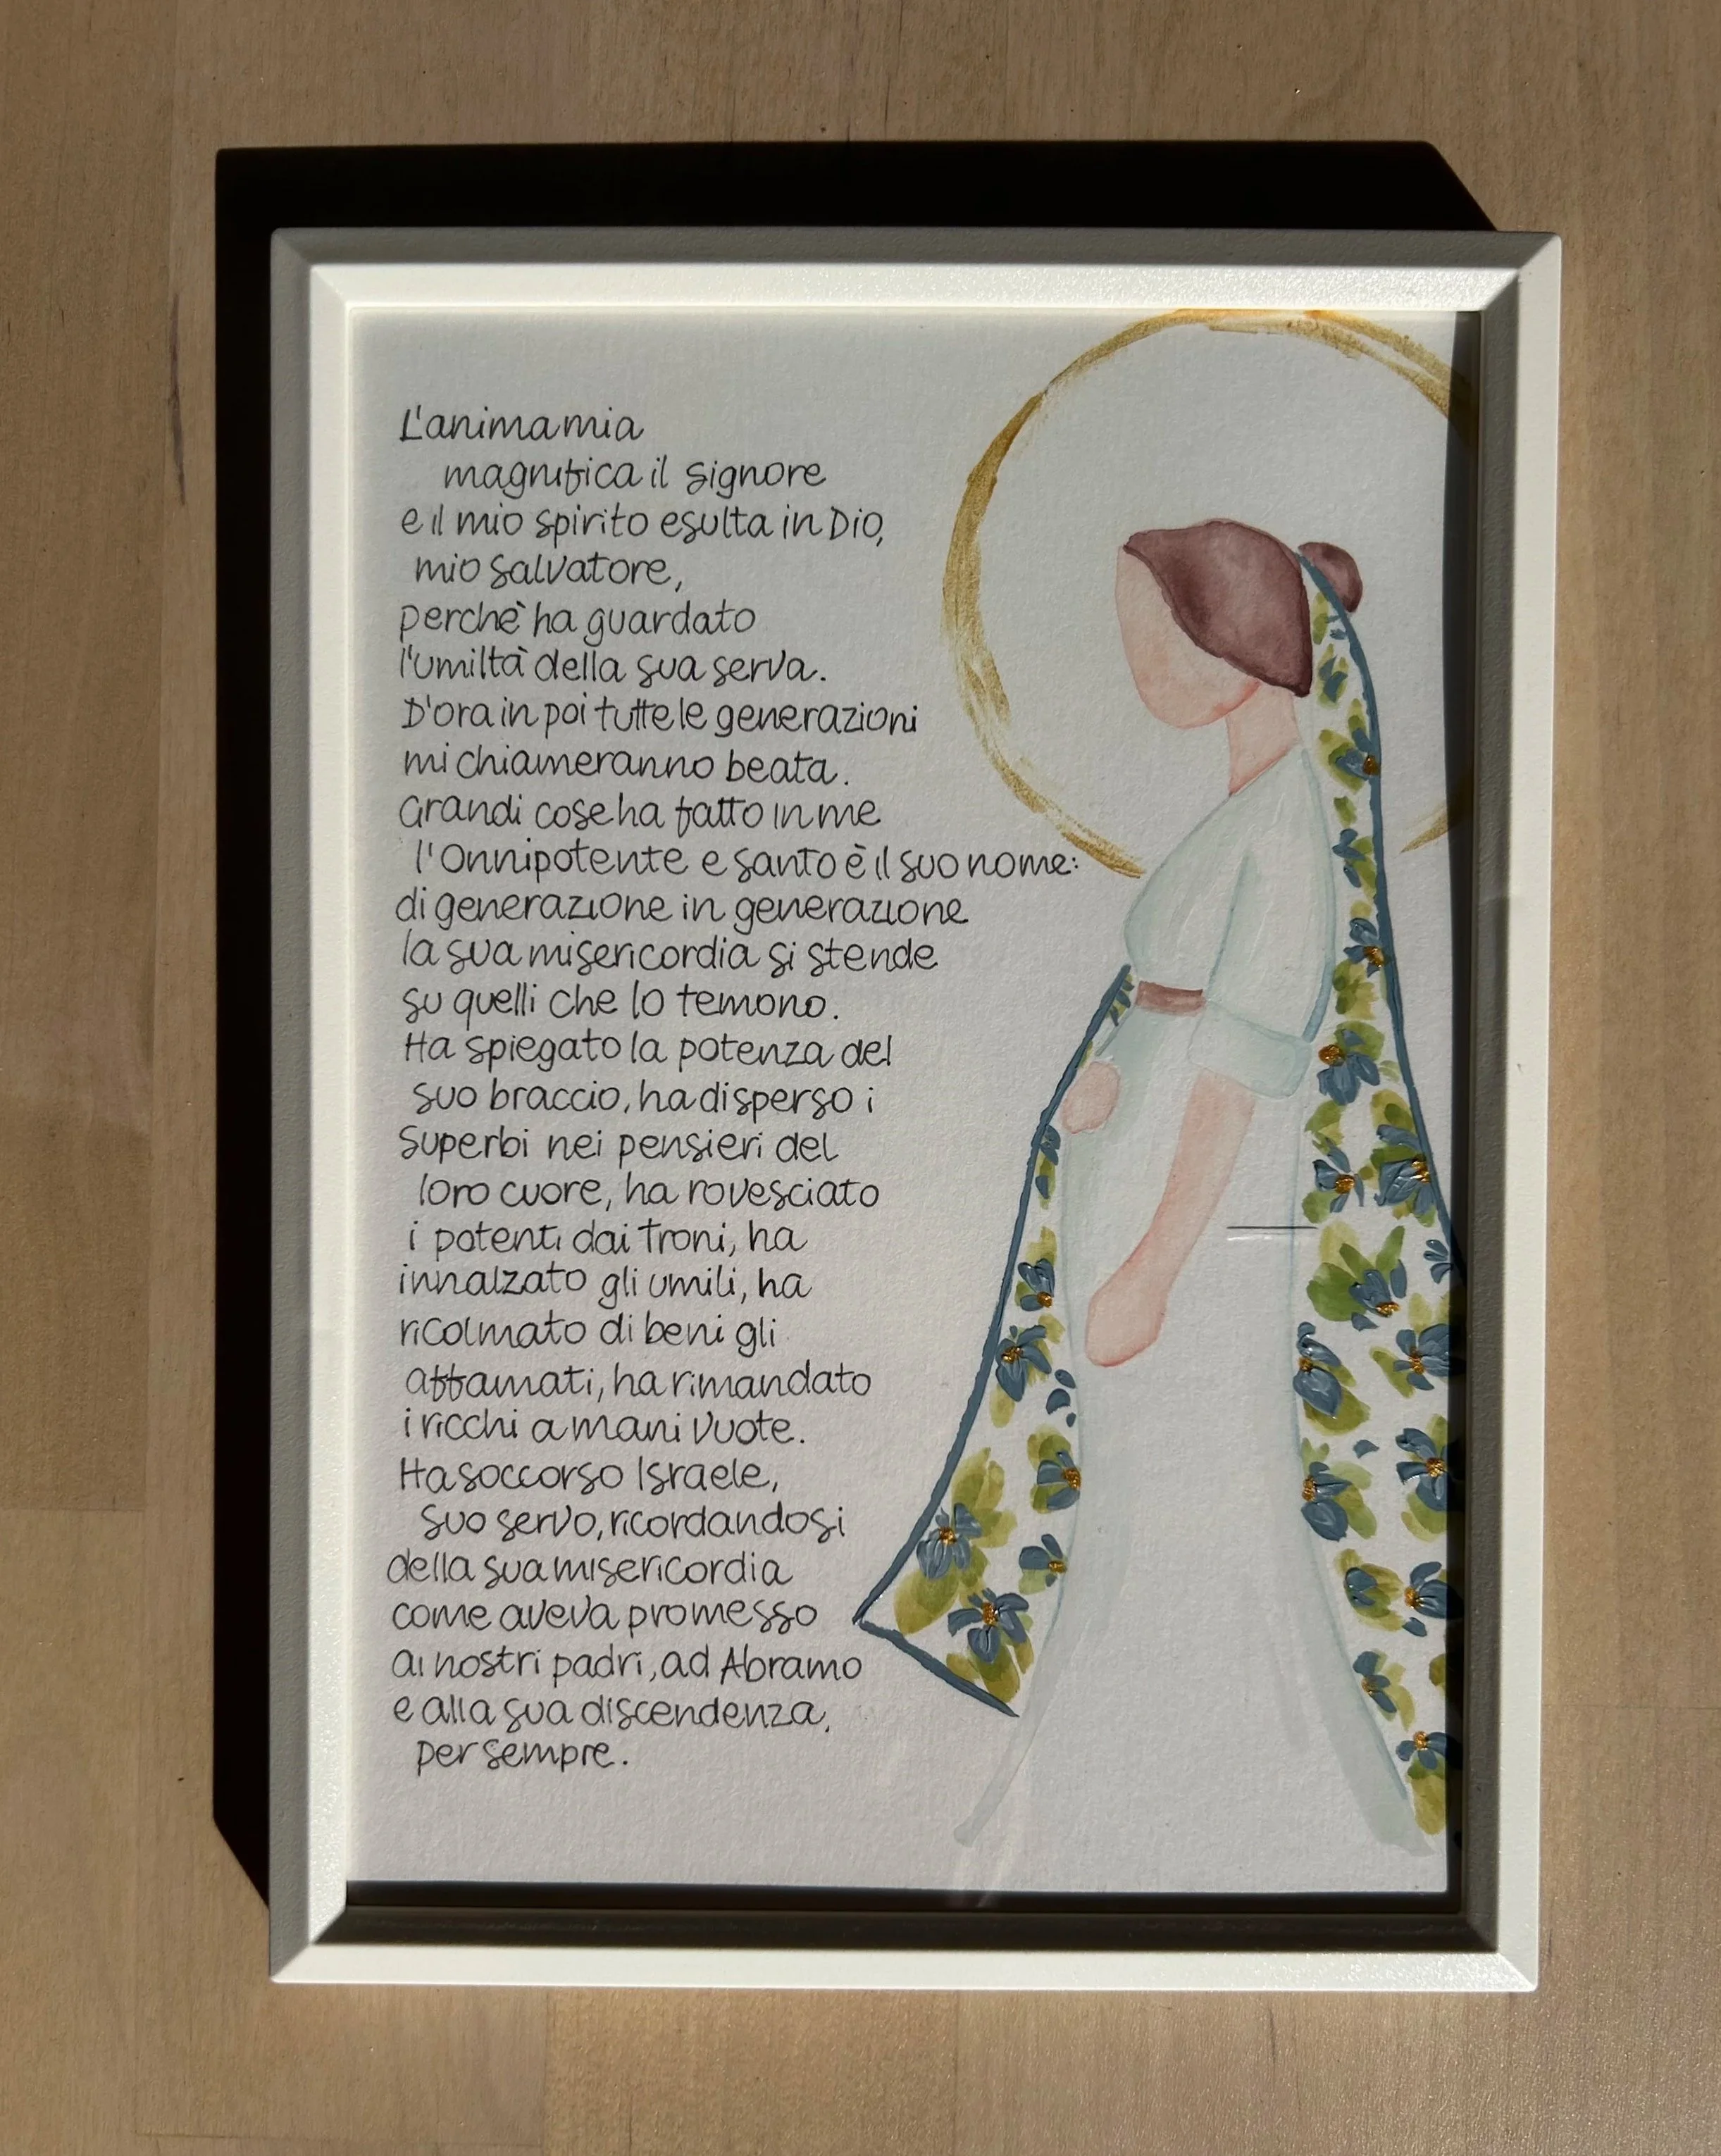 L'anima mia
magnifica il Signore
e il mio spirito esulta in Dio,
mio salvatore,
perchè ha guardato
l'umiltà della sua serva.
D'ora in poi tutte le generazioni
mi chiameranno beata.
Grandi cose ha fatto in me
l'Onnipotente e santo è il suo nome:
di generazione in generazione
la sua misericordia si stende
su quelli che lo temono.
Ha spiegato la potenza del
suo braccio, ha disperso i
superbi nei pensieri del
loro cuore, ha rovesciato
i potenti dai troni, ha
innalzato gli umili, ha
ricolmato di beni gli
affamati, ha rimandato
i ricchi a mani vuote.
Ha soccorso Israele,
suo servo, ricordandosi
della sua misericordia
come aveva promesso
ai nostri padri, ad Abramo
e alla sua discendenza,
per sempre.